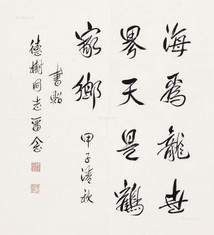 海为龙世
界天是鹤
家乡 甲子清秋
书贻
德树同志留念